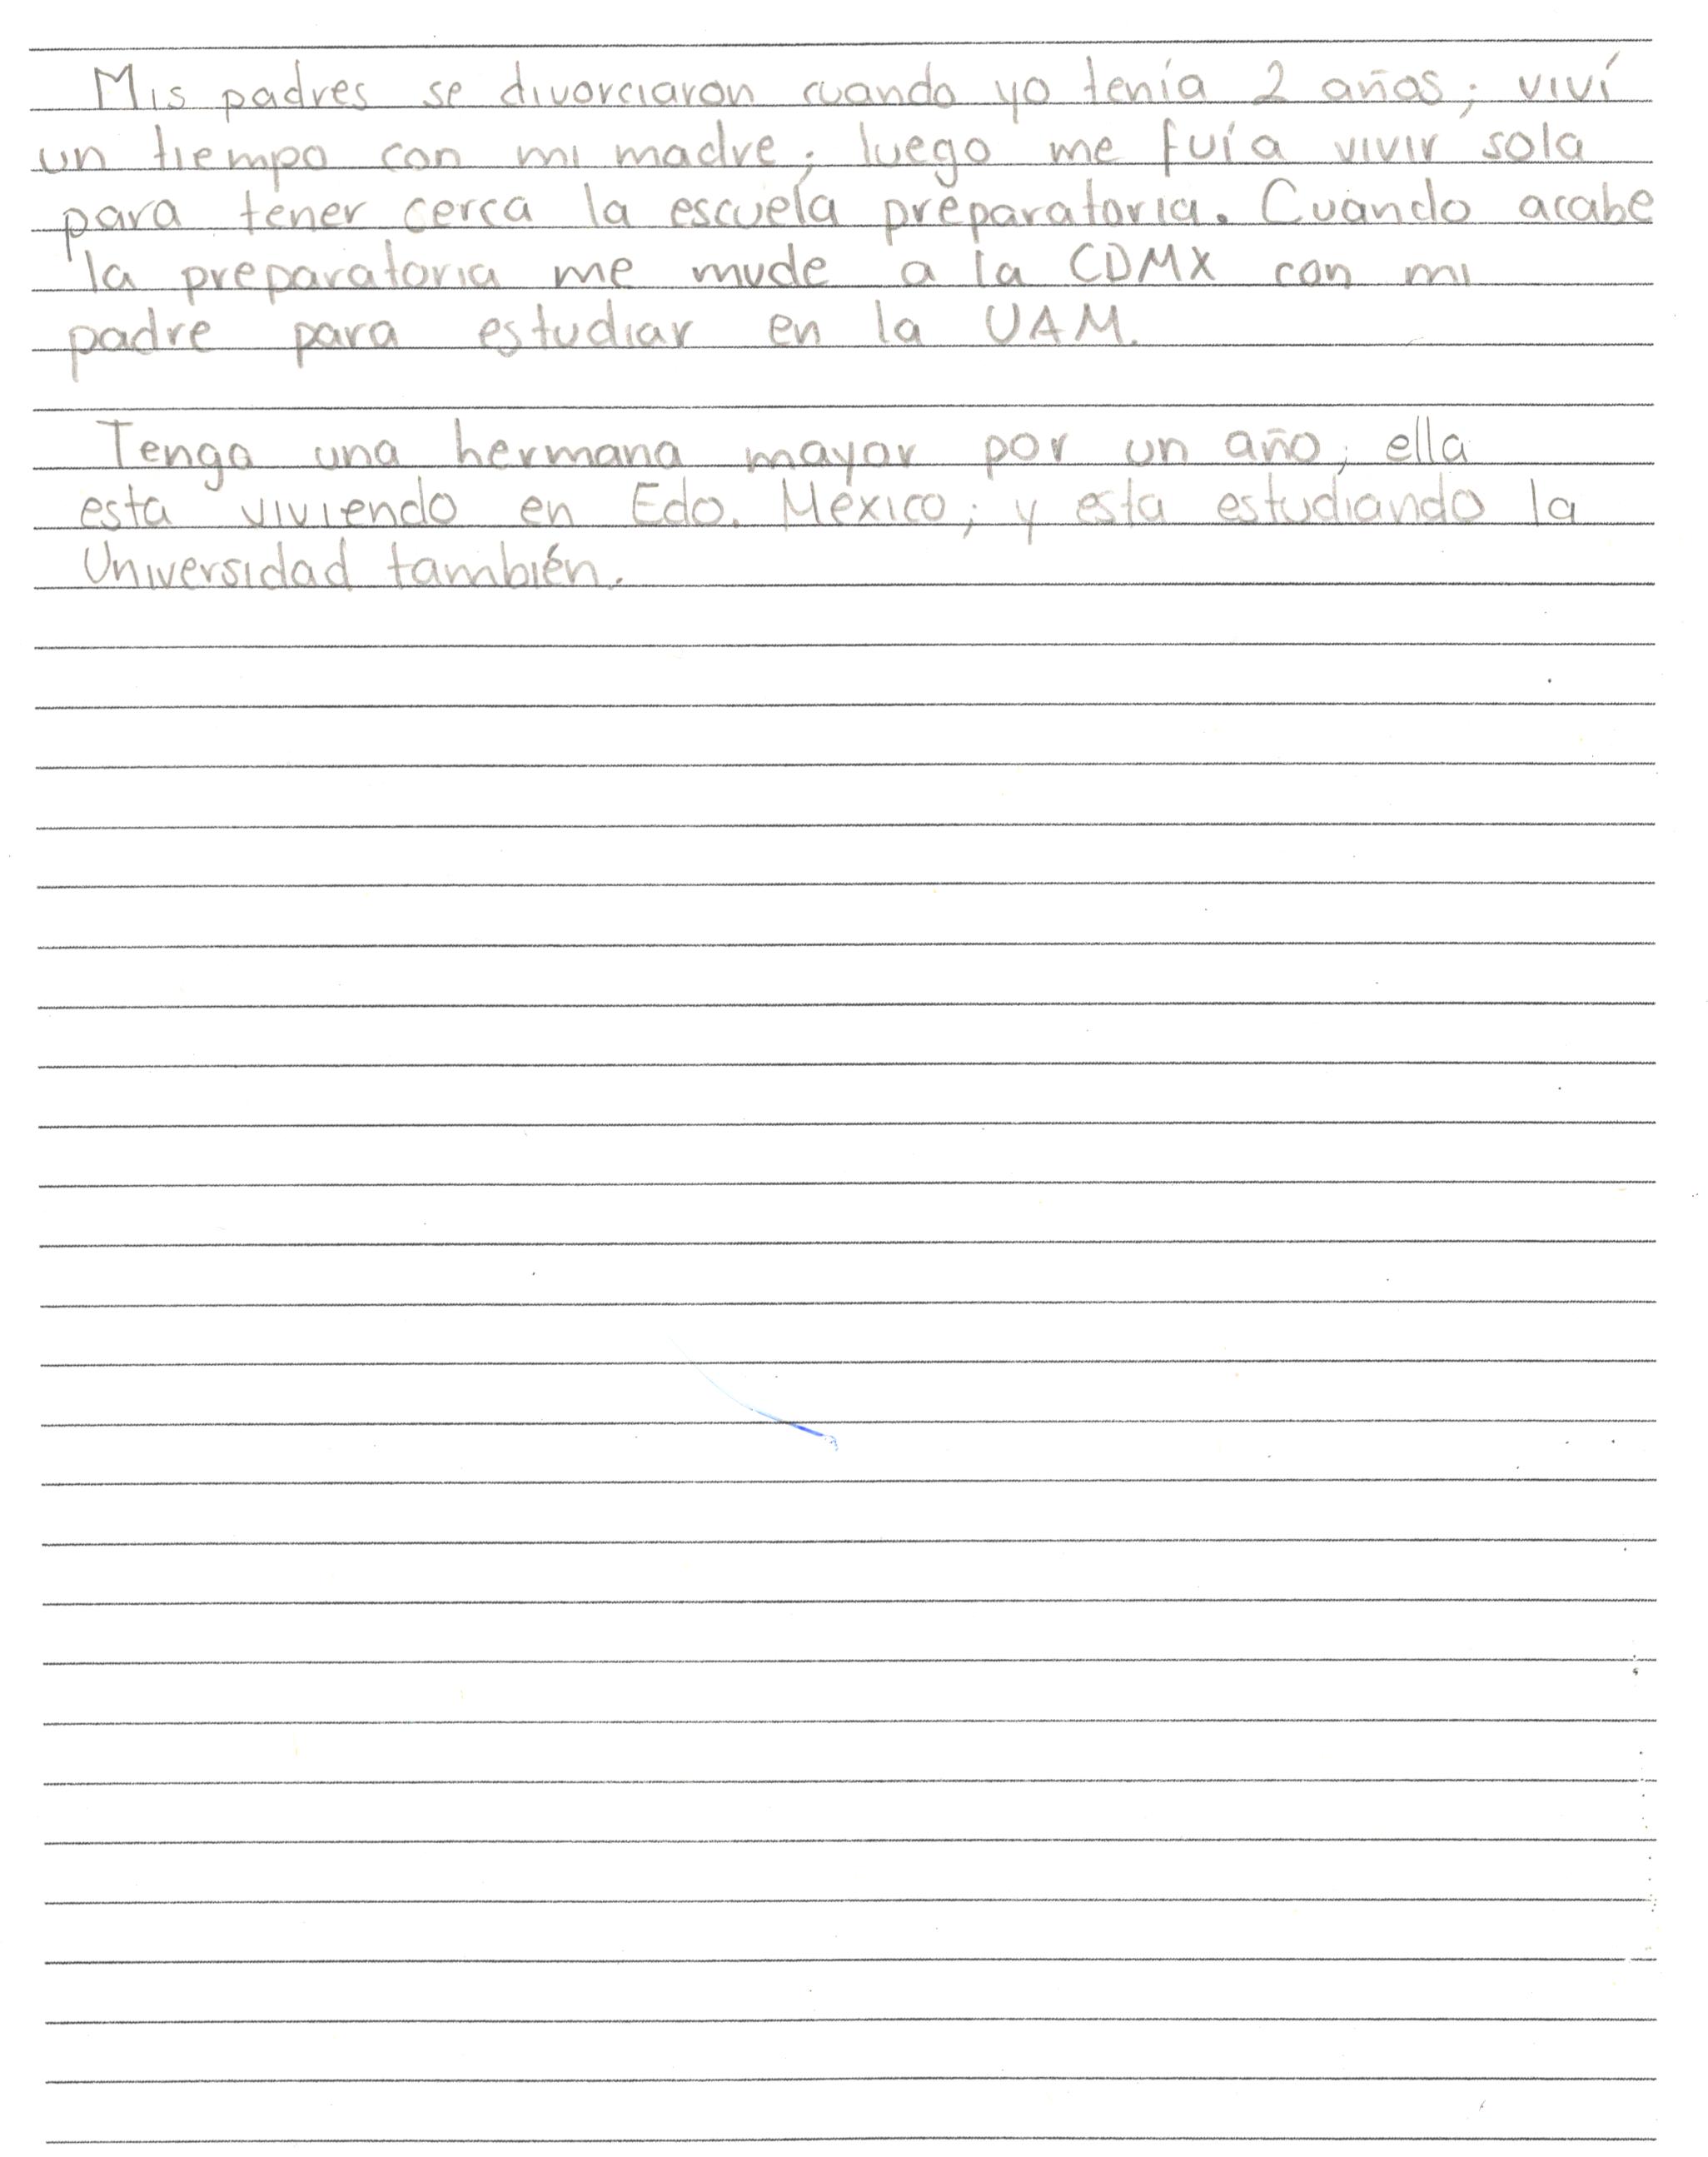 Mis padres se divorciaron cuando yo tenía 2 años; viví
un tiempo con mi madre; luego me fuí a vivir sola
para tener cerca la escuela preparatoria. Cuando acabe
la preparatoria me mude a la CDMX con mi
padre para estudiar en la UAM.
Tengo una hermana mayor por un año; ella
esta viviendo en Edo. México; y esta estudiando la
Universidad también.